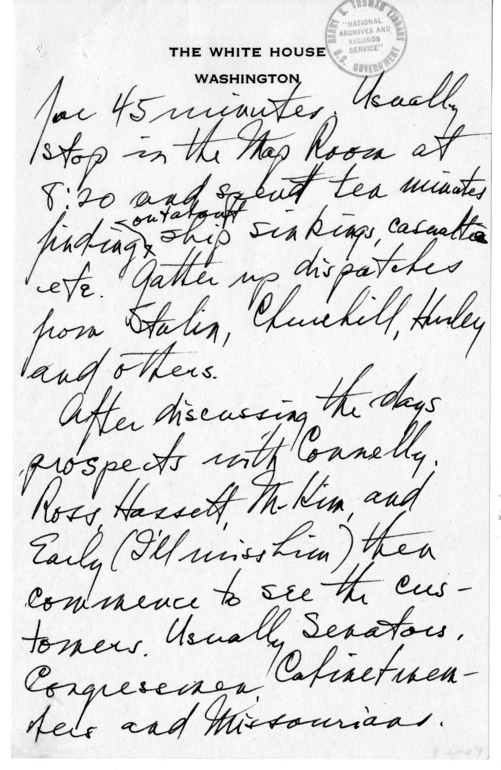 HARRY S. TRUMAN LIBRARY
"NATIONAL
ARCHIVES AND
RECORDS
SERVICE"
U.S. GOVERNMENT
THE WHITE HOUSE
WASHINGTON
for 45 minutes. Usually
stop in the Map Room at
8:20 and spend ten minutes
out about
finding ship sinkings, casualties
etc. Gather up dispatches
from Stalin, Churchill, Hurley
and others.
After discussing the days
prospects with Connelly,
Ross, Hassett, McKim, and
Early (I'll miss him) then
commence to see the cus-
tomers. Usually Senators,
Congressmen, Cabinet mem-
bers and Missourians.